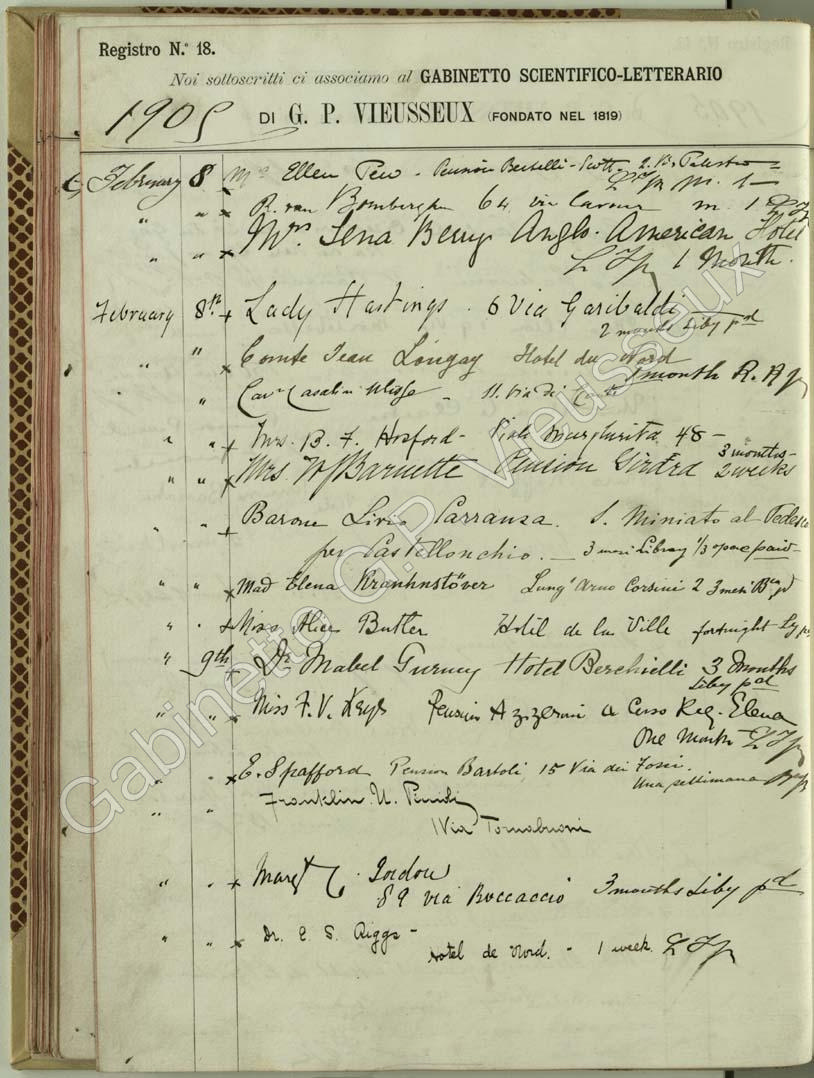 Registro N.° 18.
Noi sottoscritti ci associamo al GABINETTO SCIENTIFICO-LETTERARIO
1905 DI G. P. VIEUSSEUX (FONDATO NEL 1819)
February 8 Ellen Pew - Pension
" " x R. van 64 via Cavour m. 1
" " x Mrs. Lena Berry Anglo-American Hotel
1 Month.
February 8th + Lady Hastings. 6 Via Garibaldi
2 months Liby pd
" " x Comte Jean Hotel du Nord
1 month
" Cavr Casalini Ulisse - 11. Via di
" " + Mrs. B. F. Hosford - Viale Margherita 48 -
3 months -
" " x Mrs. Barnette Pension 2 weeks
" " + Barone Livio Carranza. S. Miniato al Tedesco
per Castellonchio. - 3 mesi Library 1/3 paid -
" " x Mad Elena Lung' Arno Corsini 2 3 mesi
" " + Miss Alice Butler Hotel de la Ville fortnight
" 9th + Dr. Mabel Gurney Hotel Berchielli 3 Months
Liby pd
" " x Miss F. V. Keys Pension Corso Reg. Elena
One Month
" " x E. Spafford Pension Bartoli, 15 Via dei Fossi.
Una settimana
" " Franklin
1 Via Tornabuoni
" " + Margt C. Gordon
89 via Boccaccio 3 months Liby pd
" " x Dr. E. S. Riggs -
Hotel de Nord. - 1 week.
Gabinetto G.P. Vieusseux